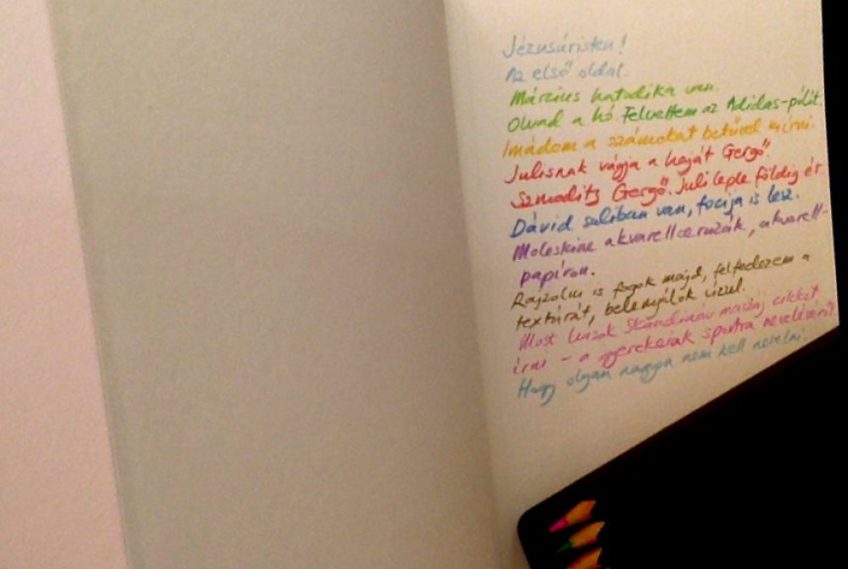 Jézusúristen!
Az első oldal.
Március hatodika van.
Olvad a hó. Felvettem az Adidas-pólót.
Imádom a számokat betűvel kiírni.
Julisnak vágja a haját Gergő.
Szmodits Gergő. Juli leple földig ér.
Dávid suliban van, focija is lesz.
Moleskine akvarellceruzák, akvarell-
papíron.
Rajzolni is fogok majd, felfedezem a
textúrát, belenyúlok vízzel.
Most húzok Skandináv masáj cikket
írni – a gyerekeink sportra neveléséről.
Hogy olyan nagyon nem kell nevelni.